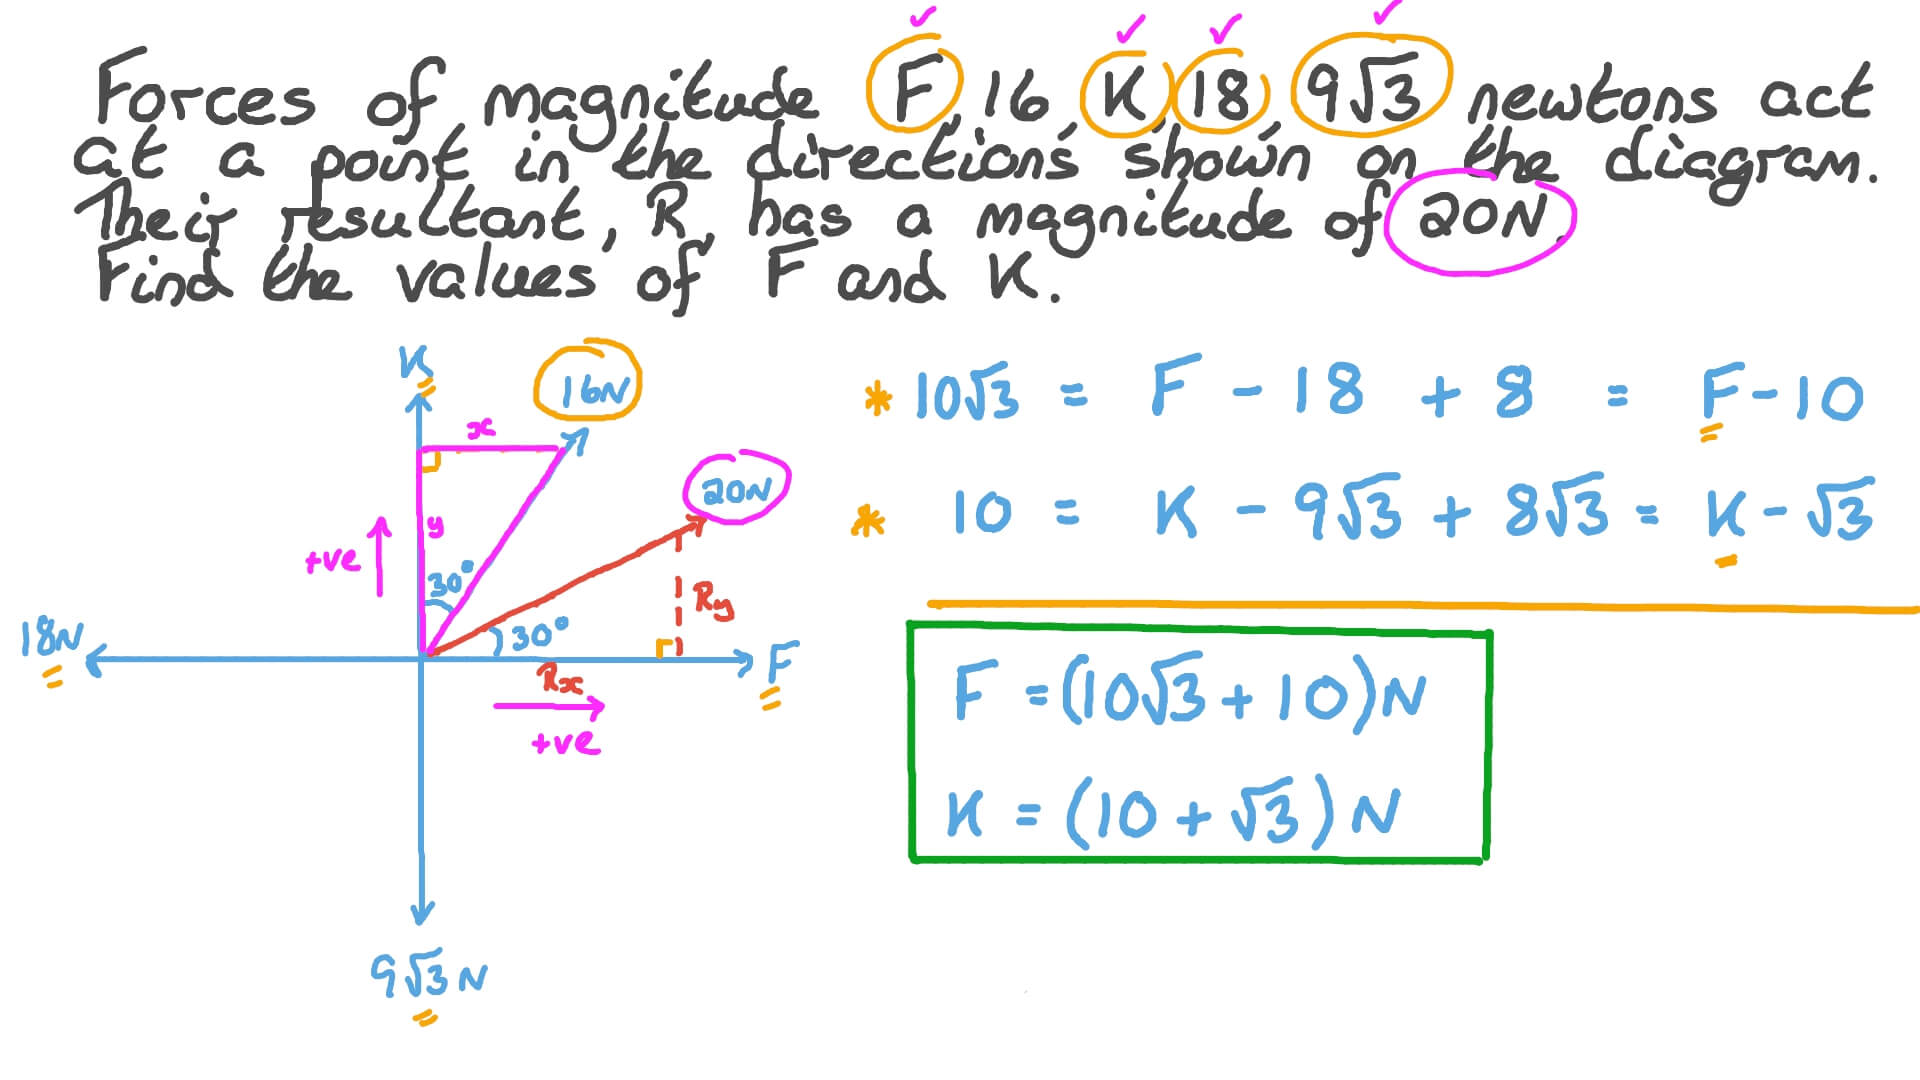 Forces of magnitude F, 16, K, 18, 9√3 newtons act
at a point in the directions shown on the diagram.
Their resultant, R, has a magnitude of 20N.
Find the values of F and K.
K
16N
x
20N
y
+ve
30°
Ry
30°
18N
F
Rx
+ve
9√3 N
* 10√3 = F - 18 + 8 = F - 10
* 10 = K - 9√3 + 8√3 = K - √3
F = (10√3 + 10)N
K = (10 + √3)N